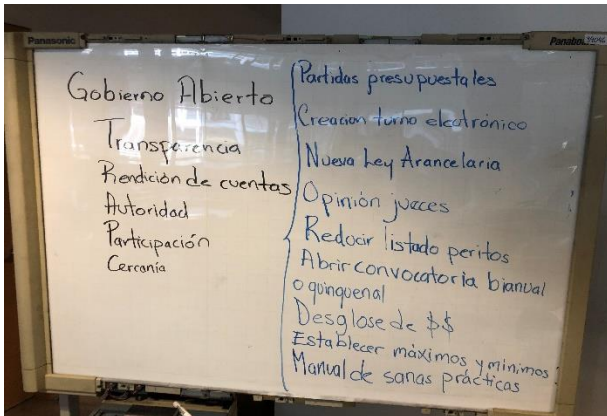 Panasonic
Gobierno Abierto
Transparencia
Rendición de cuentas
Autoridad
Participación
Cercanía
Partidas presupuestales
Creacion turno electrónico
Nueva Ley Arancelaria
Opinión jueces
Reducir listado peritos
Abrir convocatoria bianual
o quinquenal
Desglose de $$
Establecer máximos y mínimos
Manual de sanas prácticas